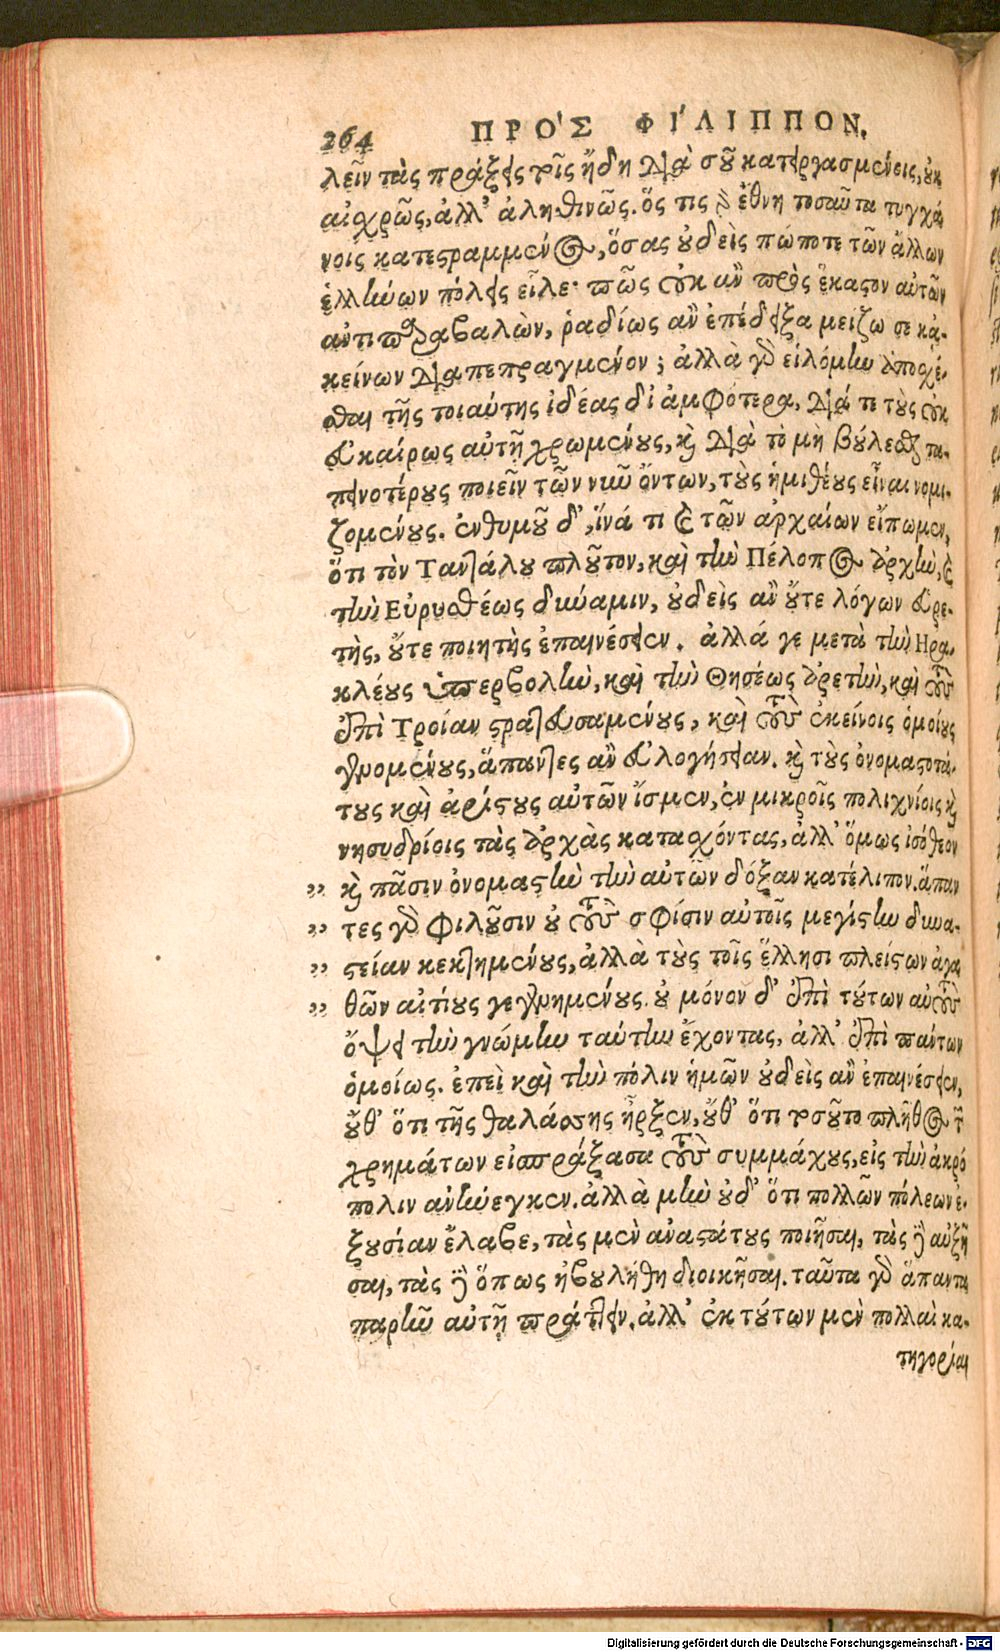 264 ΠΡΟ'Σ ΦΙ'ΛΙΠΠΟΝ.
λεῖν τὰς πράξεις τοῖς ἤδη διὰ σοῦ κατειργασμένοις, οὐκ
αἰχρῶς, ἀλλ' ἀληθινῶς. ὅς τις δὲ ἔθνη τοσαῦτα τυγχά
νοις κατεστραμμένος, ὅσας οὐδεὶς πώποτε τῶν ἄλλων
ἑλλήνων πόλεις εἷλε· πῶς οὐκ ἂν πρὸς ἕκαστον αὐτῶν
ἀντιπαραβαλὼν, ῥαδίως ἂν ἐπέδειξα μείζω σε κἀ-
κείνων διαπεπραγμένον; ἀλλὰ γὰρ εἱλόμην ἀποσχέ-
σθαι τῆς τοιαύτης ἰδέας δι' ἀμφότερα, διά τε τοὺς οὐκ
εὐκαίρως αὐτῇ χρωμένους, καὶ διὰ τὸ μὴ βούλεσθαι τα-
πεινοτέρους ποιεῖν τῶν νῦν ὄντων, τοὺς ἡμιθέους εἶναι νομι-
ζομένους. ἐνθυμοῦ δ', ἵνά τι καὶ τῶν ἀρχαίων εἴπωμεν,
ὅτι τὸν Ταντάλου πλοῦτον, καὶ τὴν Πέλοπος ἀρχὴν, καὶ
τὴν Εὐρυσθέως δύναμιν, οὐδεὶς ἂν οὔτε λόγων εὑρε-
τὴς, οὔτε ποιητὴς ἐπαινέσειεν. ἀλλά γε μετὰ τὴν Ηρα-
κλέους ὑπερβολὴν, καὶ τὴν Θησέως ἀρετὴν, καὶ τοὺς
ἐπὶ Τροίαν στρατευσαμένους, καὶ τοὺς ἐκείνοις ὁμοίους
γενομένους, ἅπαντες ἂν εὐλογήσειαν. καὶ τοὺς ὀνομαστοτά-
τους καὶ ἀρίστους αὐτῶν ἴσμεν, ἐν μικροῖς πολιχνίοις καὶ
νησυδρίοις τὰς ἀρχὰς κατασχόντας, ἀλλ' ὅμως ἰσόθεον
,, καὶ πᾶσιν ὀνομαστὴν τὴν αὑτῶν δόξαν κατέλιπον. ἅπαν
,, τες γὰρ φιλοῦσιν οὐ τοὺς σφίσιν αὐτοῖς μεγίστην δυνα-
,, στείαν κεκτημένους, ἀλλὰ τοὺς τοῖς ἕλλησι πλείστων ἀγα
,, θῶν αἰτίους γεγενημένους. οὐ μόνον δ' ἐπὶ τούτων αὐτοὺς
ὄψει τὴν γνώμην ταύτην ἔχοντας, ἀλλ' ἐπὶ πάντων
ὁμοίως. ἐπεὶ καὶ τὴν πόλιν ἡμῶν οὐδεὶς ἂν ἐπαινέσειεν,
οὔθ' ὅτι τῆς θαλάσσης ἦρξεν, οὔθ' ὅτι τοσοῦτο πλῆθος τῶν
χρημάτων εἰσπράξασα τοὺς συμμάχους, εἰς τὴν ἀκρό
πολιν ἀνήνεγκεν. ἀλλὰ μὴν οὐδ' ὅτι πολλῶν πόλεων ἐ-
ξουσίαν ἔλαβε, τὰς μὲν ἀναστάτους ποιῆσαι, τὰς δὲ αὐξῆ
σαι, τὰς δὲ ὅπως ἠβουλήθη διοικῆσαι. ταῦτα γὰρ ἅπαντα
παρῆν αὐτῇ πράττειν. ἀλλ' ἐκ τούτων μὲν πολλαὶ κα-
τηγορίαι
Digitalisierung gefördert durch die Deutsche Forschungsgemeinschaft - DFG